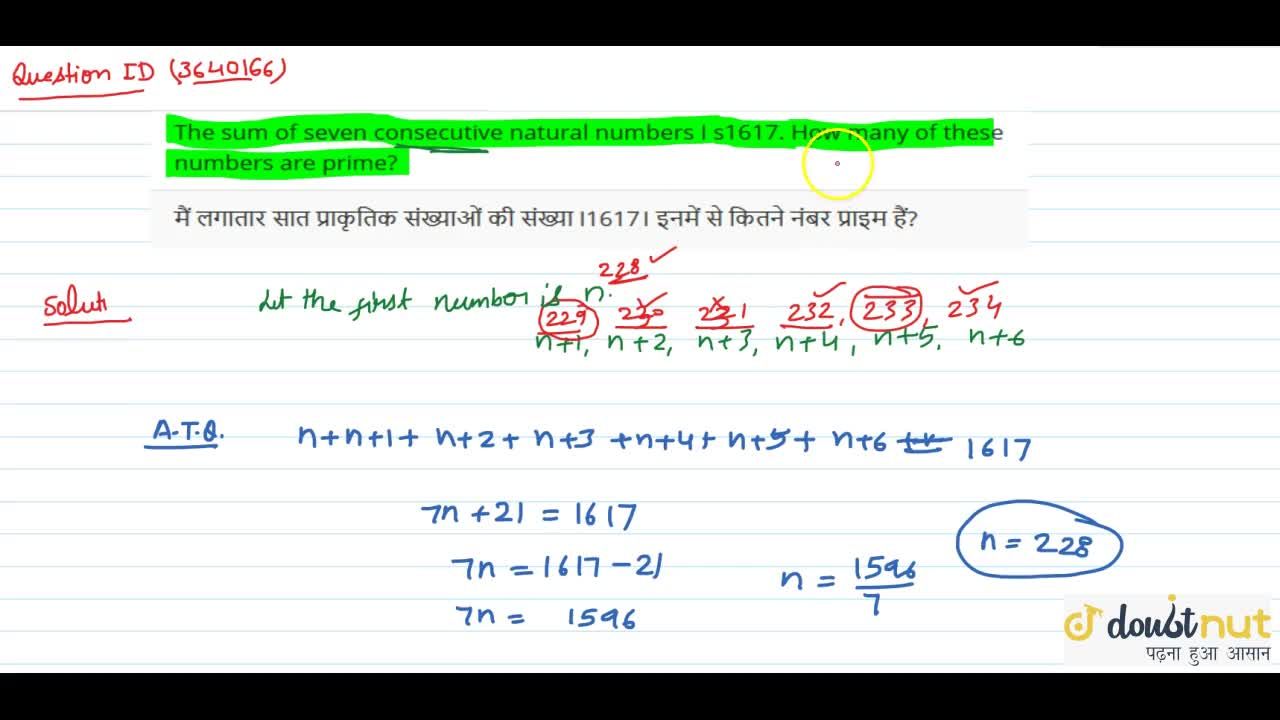 Question ID (3640166)
The sum of seven consecutive natural numbers I s1617. How many of these
numbers are prime?
मैं लगातार सात प्राकृतिक संख्याओं की संख्या ।1617। इनमें से कितने नंबर प्राइम हैं?
228 ✓
Soluti Let the first number is n.
229 230 231 232, 233, 234
n+1, n+2, n+3, n+4, n+5, n+6
A.T.Q. n+n+1+ n+2+ n+3 +n+4+ n+5+ n+6 = 1617
7n +21 = 1617
7n = 1617-21
n = 1596/7
n = 228
7n = 1596
doubtnut
पढ़ना हुआ आसान